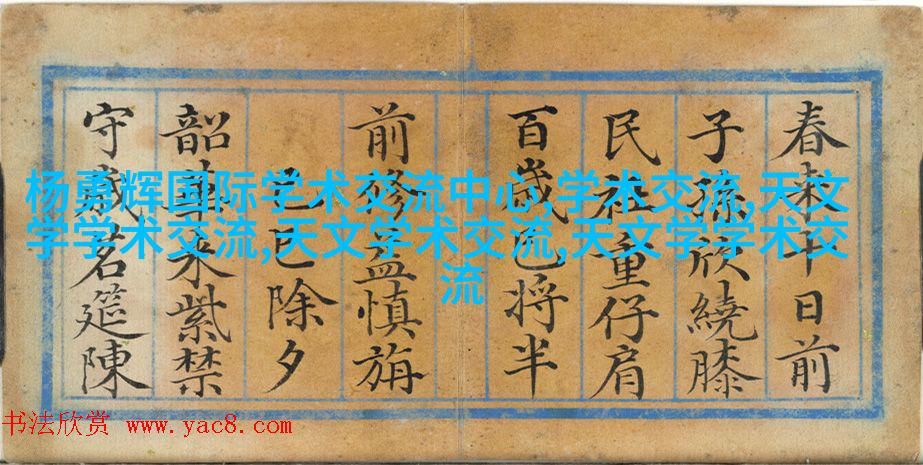 春来十日前
子孫欣繞膝
民社重仔肩
百歲已将半
前修益慎旃
己巳除夕
韶華来紫禁
守歲茗筵陳
杨勇辉国际学术交流中心,学术交流,天文
学学术交流,天文学术交流,天文学学术交
流
书法欣赏 www.yac8.com